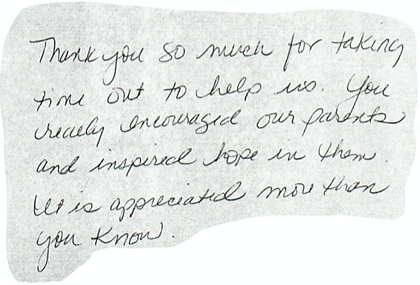 Thank you so much for taking
time out to help us. You
really encouraged our parents
and inspired hope in them.
It is appreciated more than
you know.